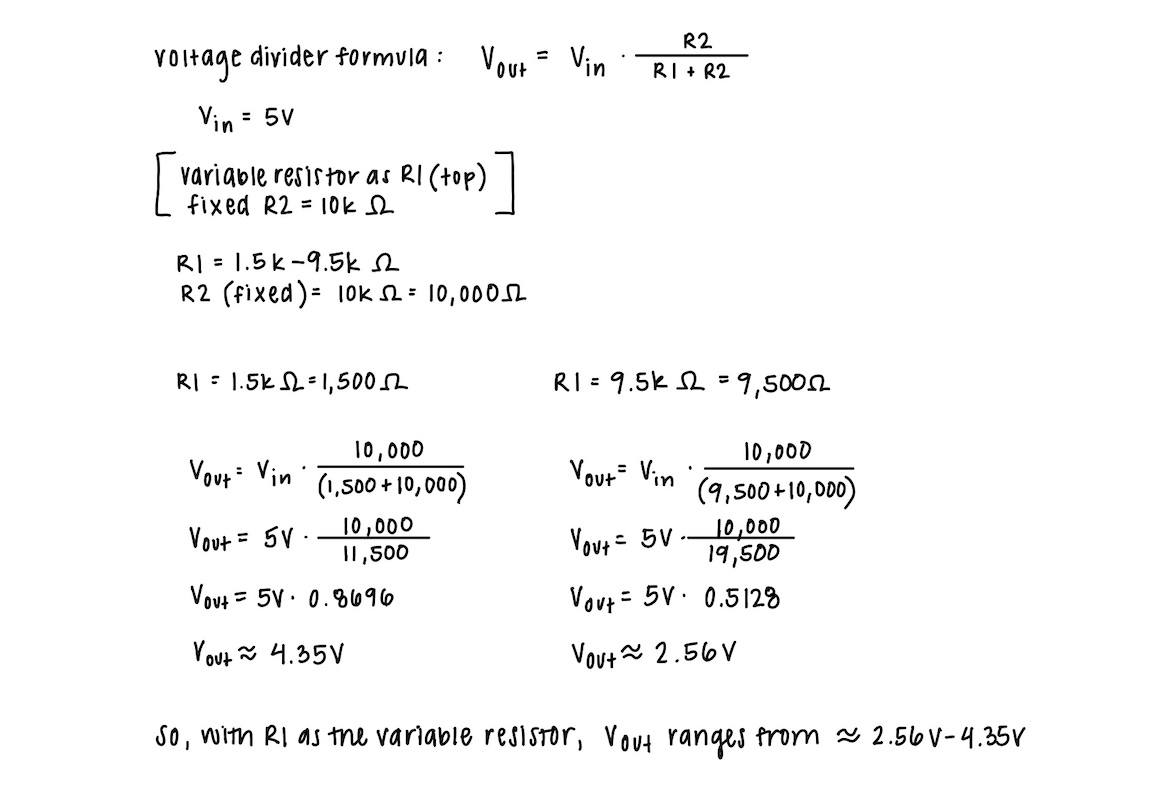 voltage divider formula: Vout = Vin · R2 / (R1 + R2)
Vin = 5V
[variable resistor as R1 (top)
fixed R2 = 10k Ω]
R1 = 1.5k-9.5k Ω
R2 (fixed) = 10k Ω = 10,000Ω
R1 = 1.5k Ω = 1,500 Ω
Vout = Vin · 10,000 / (1,500 + 10,000)
Vout = 5V · 10,000 / 11,500
Vout = 5V · 0.8696
Vout ≈ 4.35V
R1 = 9.5k Ω = 9,500Ω
Vout = Vin · 10,000 / (9,500 + 10,000)
Vout = 5V · 10,000 / 19,500
Vout = 5V · 0.5128
Vout ≈ 2.56V
So, with R1 as the variable resistor, Vout ranges from ≈ 2.56V-4.35V